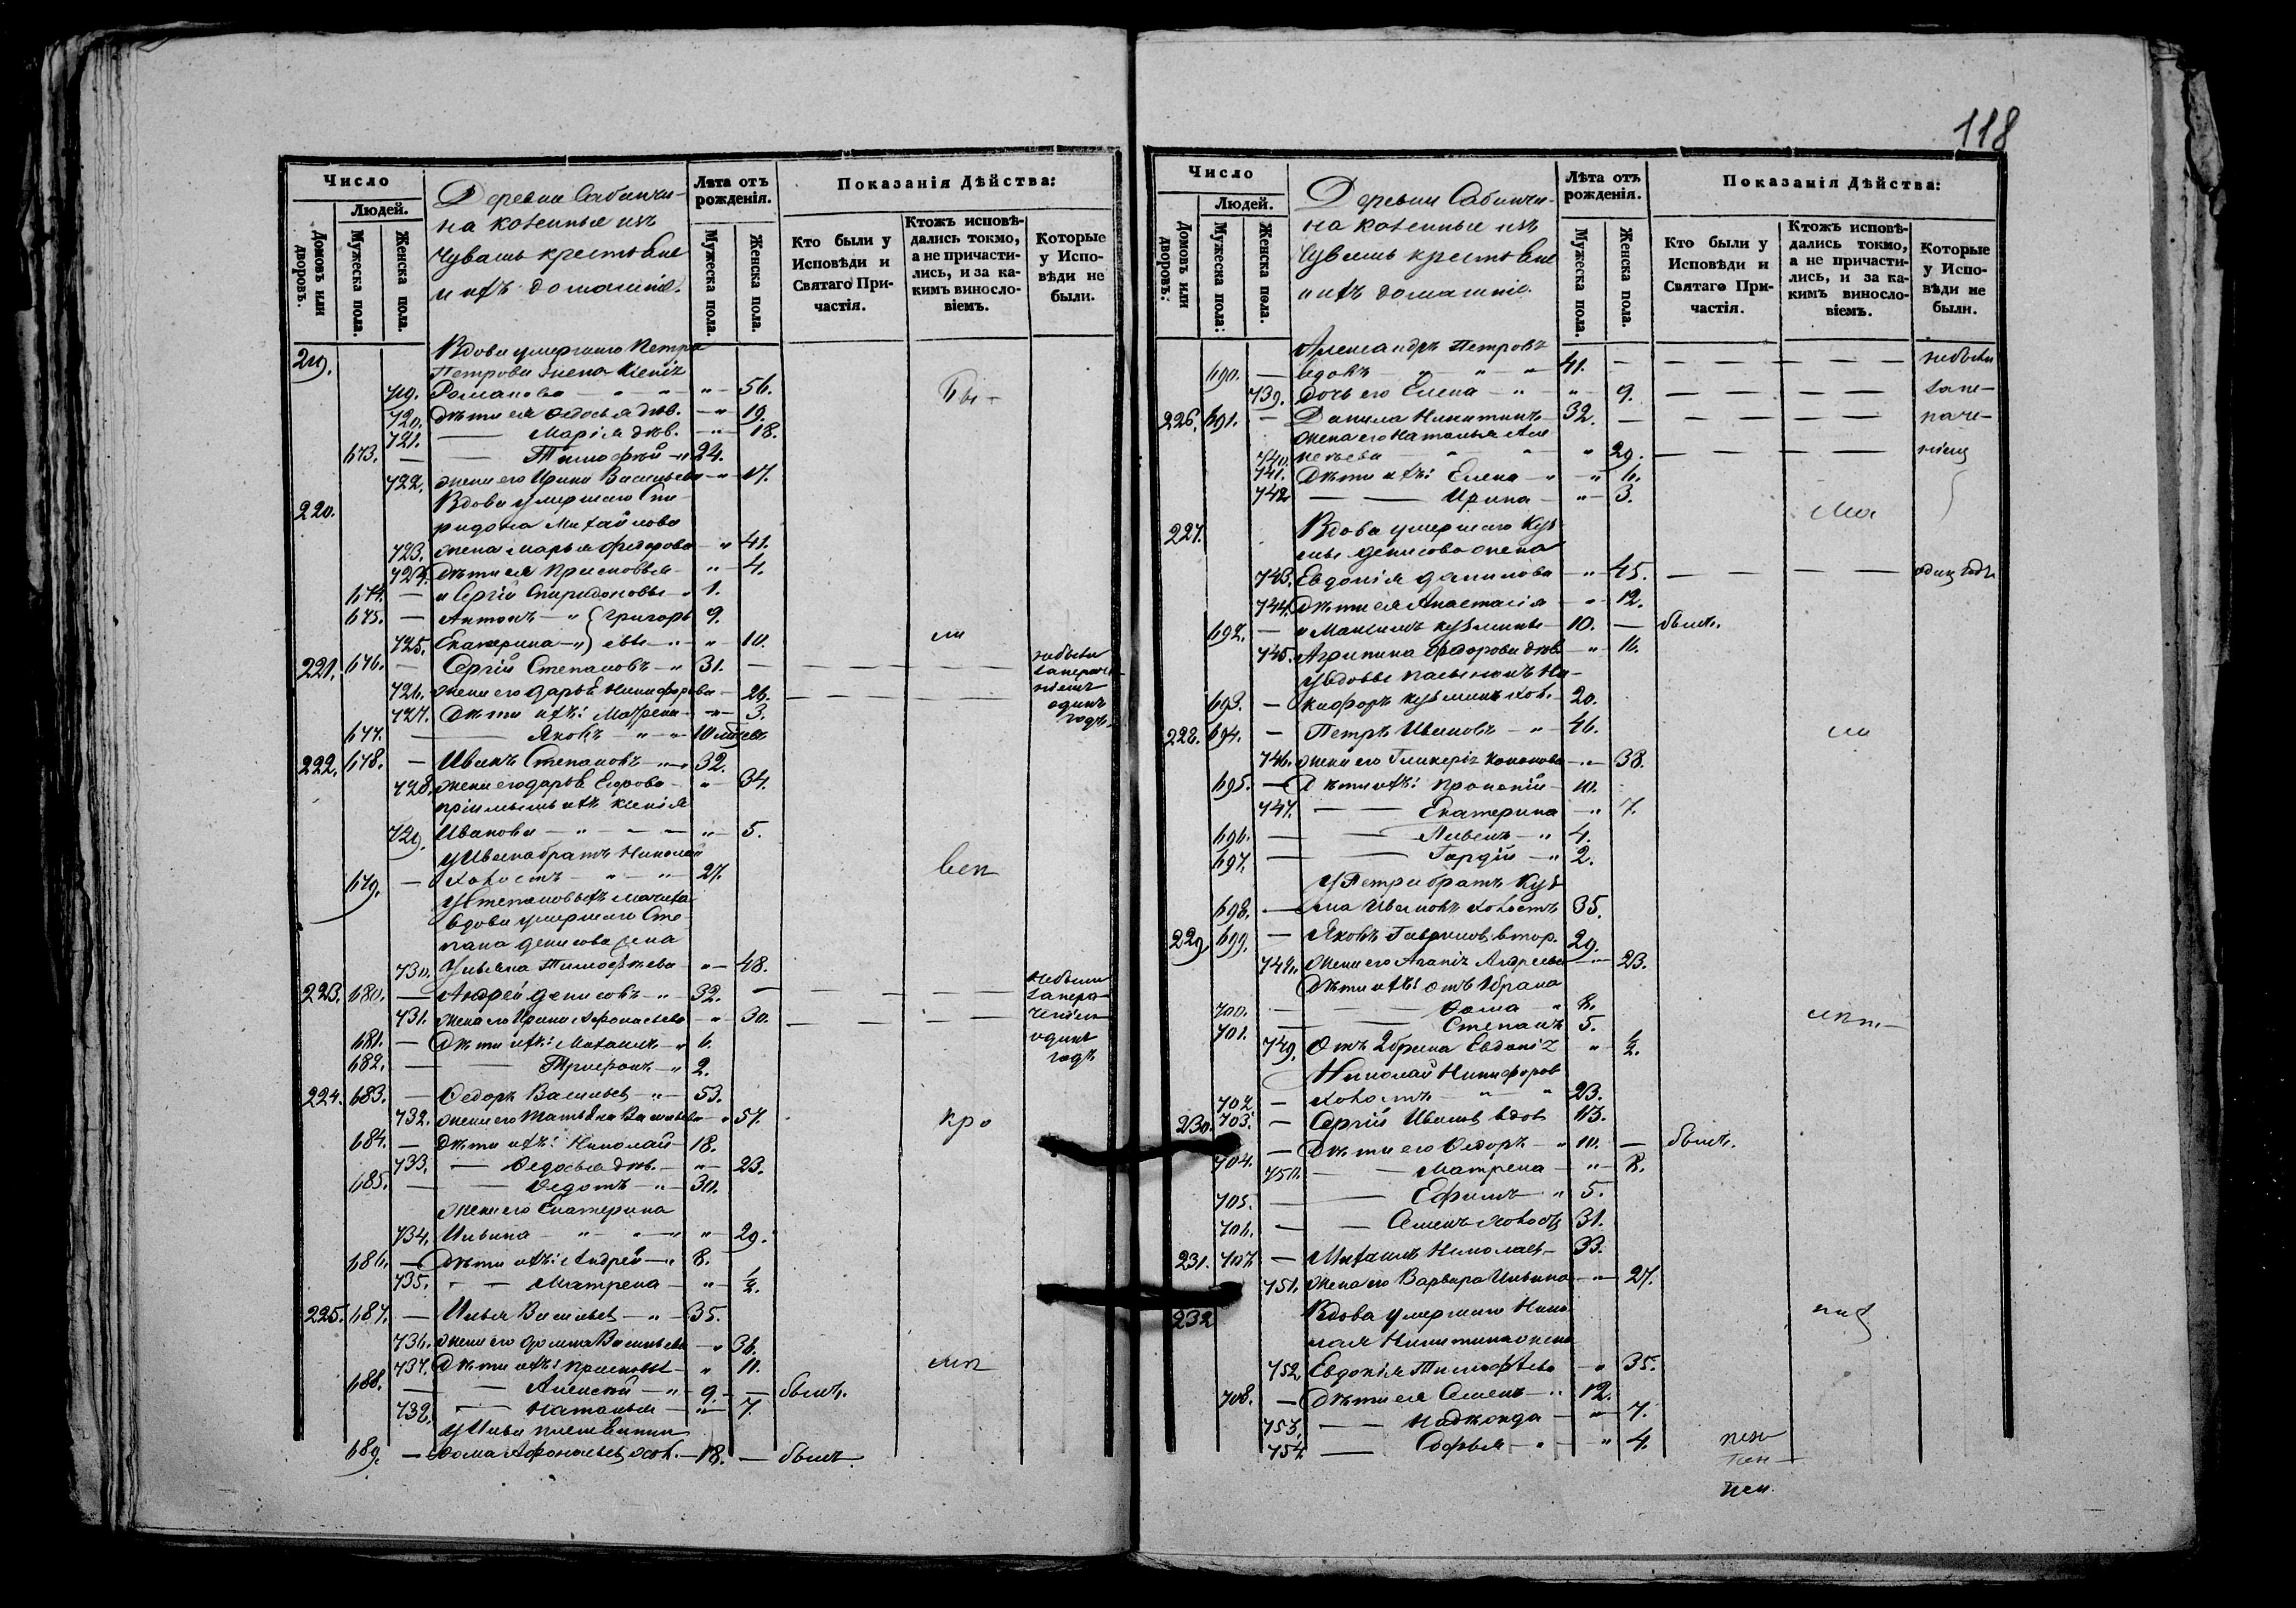 118
Число
Людей.
Домовъ или дворовъ.
Мужеска пола.
Женска пола.
Деревни Сабанчи-
на казенные изъ
Чувашъ крестьяне
и ихъ домашніе.
Лѣта отъ рожденія.
Мужеска пола.
Женска пола.
Показанія Дѣйства:
Кто были у Исповѣди и Святаго Причастія.
Ктожъ исповѣдались токмо, а не причастились, и за какимъ винословіемъ.
Которые у Исповѣди не были.
219. Вдова умершаго Петра
Петрова жена
719. Романова — " — 56. Бы-
720. Дѣти ея Ѳедосья дѣв. — " 19.
721. — Марія дѣв. — " 18.
673. — Тимофей — " 24.
722. жена его Ирина Васильева — " 17.
220. Вдова умершаго Спи-
ридона Михайлова
723. жена Марья Федорова — " 41.
724. Дѣти ея — " 4.
674. — и Сергій Спиридоновы — " 1.
675. — Антонъ — " Григорь 9.
725. Екатерина — " евы — " 10. ли
221. 676. — Сергій Степановъ — " 31. — небыли
726. жена его Дарья Никифорова — 26.
727. Дѣти ихъ: Матрена — " 3. одинъ годъ
677. — Яковъ — " 10
222. 678. — Иванъ Степановъ — " 32.
728. жена его Дарья — " 34.
729. Иванова — " — " 5.
у Ивана братъ Николай
679. — холостъ — " 27.
вдова умершаго Сте-
пана Денисова жена
730. Ульяна Тимофѣева — " 48.
223. 680. — Андрей Денисовъ — " 32. — небыли
731. жена его Ирина — " 30.
681. — Дѣти ихъ: Михаилъ — " 6. одинъ
682. — Трифонъ — " 2. годъ
224. 683. — Ѳедоръ Васильевъ — " 53.
732. жена его Татьяна Васильева — " 57. про
684. — Дѣти ихъ: Николай — 18.
733. — Ѳедосья дѣв. — " 23.
685. — Ѳедотъ — " 30.
жена его Екатерина
734. Ильина — " — " 29.
686. — Дѣти ихъ: Андрей — " 8.
735. — Матрена — " ½.
225. 687. — Илья Васильевъ — " 35.
736. жена его Васильева — " 36.
737. Дѣти ихъ: — " 11.
688. — Алексѣй — " 9. — былъ.
738. — Наталья — " 7.
у Ильи племянникъ
689. — Ѳома Афонасьевъ хол. — 18. — былъ.
Число
Людей.
Домовъ или дворовъ:
Мужеска пола:
Женска пола.
Деревни Сабанчи-
на казенные изъ
Чувашъ крестьяне
и ихъ домашніе.
Лѣта отъ рожденія.
Мужеска пола.
Женска пола.
Показанія Дѣйства:
Кто были у Исповѣди и Святаго Причастія.
Ктожъ исповѣдались токмо, а не причастились, и за какимъ винословіемъ.
Которые у Исповѣди не были.
Александръ Петровъ
690. — вдовъ — " 41. — небыли
739. дочь его Елена — " 9.
226. 691. — Данила Никитинъ — 32.
жена его Наталья Але
740. — " 29.
741. Дѣти ихъ: Елена — " 6.
742. — Ирина — " 3.
227. Вдова умершаго Кузь
мы Денисова жена
743. Евдокія Данилова — " 45. — одинъ годъ
744. Дѣти ея Анастасія — " 12.
692. — и Максимъ Кузьмины — 10. — былъ.
745. Агрипина Федорова дѣв. — " 16.
у вдовы пасынокъ Ни-
693. — кифоръ Кузьминъ хол. — 20.
228. 694. — Петръ Ивановъ — " 46. ли
746. жена его Гликерія — " 38.
695. — Дѣти ихъ: — 10.
747. — Екатерина — " 7.
696. — " 4.
697. — Гордій — " 2.
у Петра братъ Кузь
698. — ма Ивановъ холостъ 35.
229. 699. — Яковъ Гавриловъ втор. 29.
748. жена его Андреева — " 23.
Дѣти ихъ: отъ 1брака
700. — Ѳома — " 8.
701. — Степанъ 5.
749. отъ 2брака " ½.
Николай Никифоров
702. — холостъ — " 23.
230. 703. — Сергій Ивановъ вдов.
704. — Дѣти его Ѳедоръ — " 10. — былъ.
750. — Матрена — " 8.
705. — Ефимъ — " 5.
706. — Семенъ холостъ 31.
231. 707. — Михаилъ Николаевъ — 33.
751. жена его Варвара Ильина — " 27.
232. Вдова умершаго Нико
лая Никитина жена
752. Евдокія Тимофѣева — " 35.
708. — Дѣти ея Семенъ — " 12.
753. — Надежда — " 7.
754. — Софья — " 4.